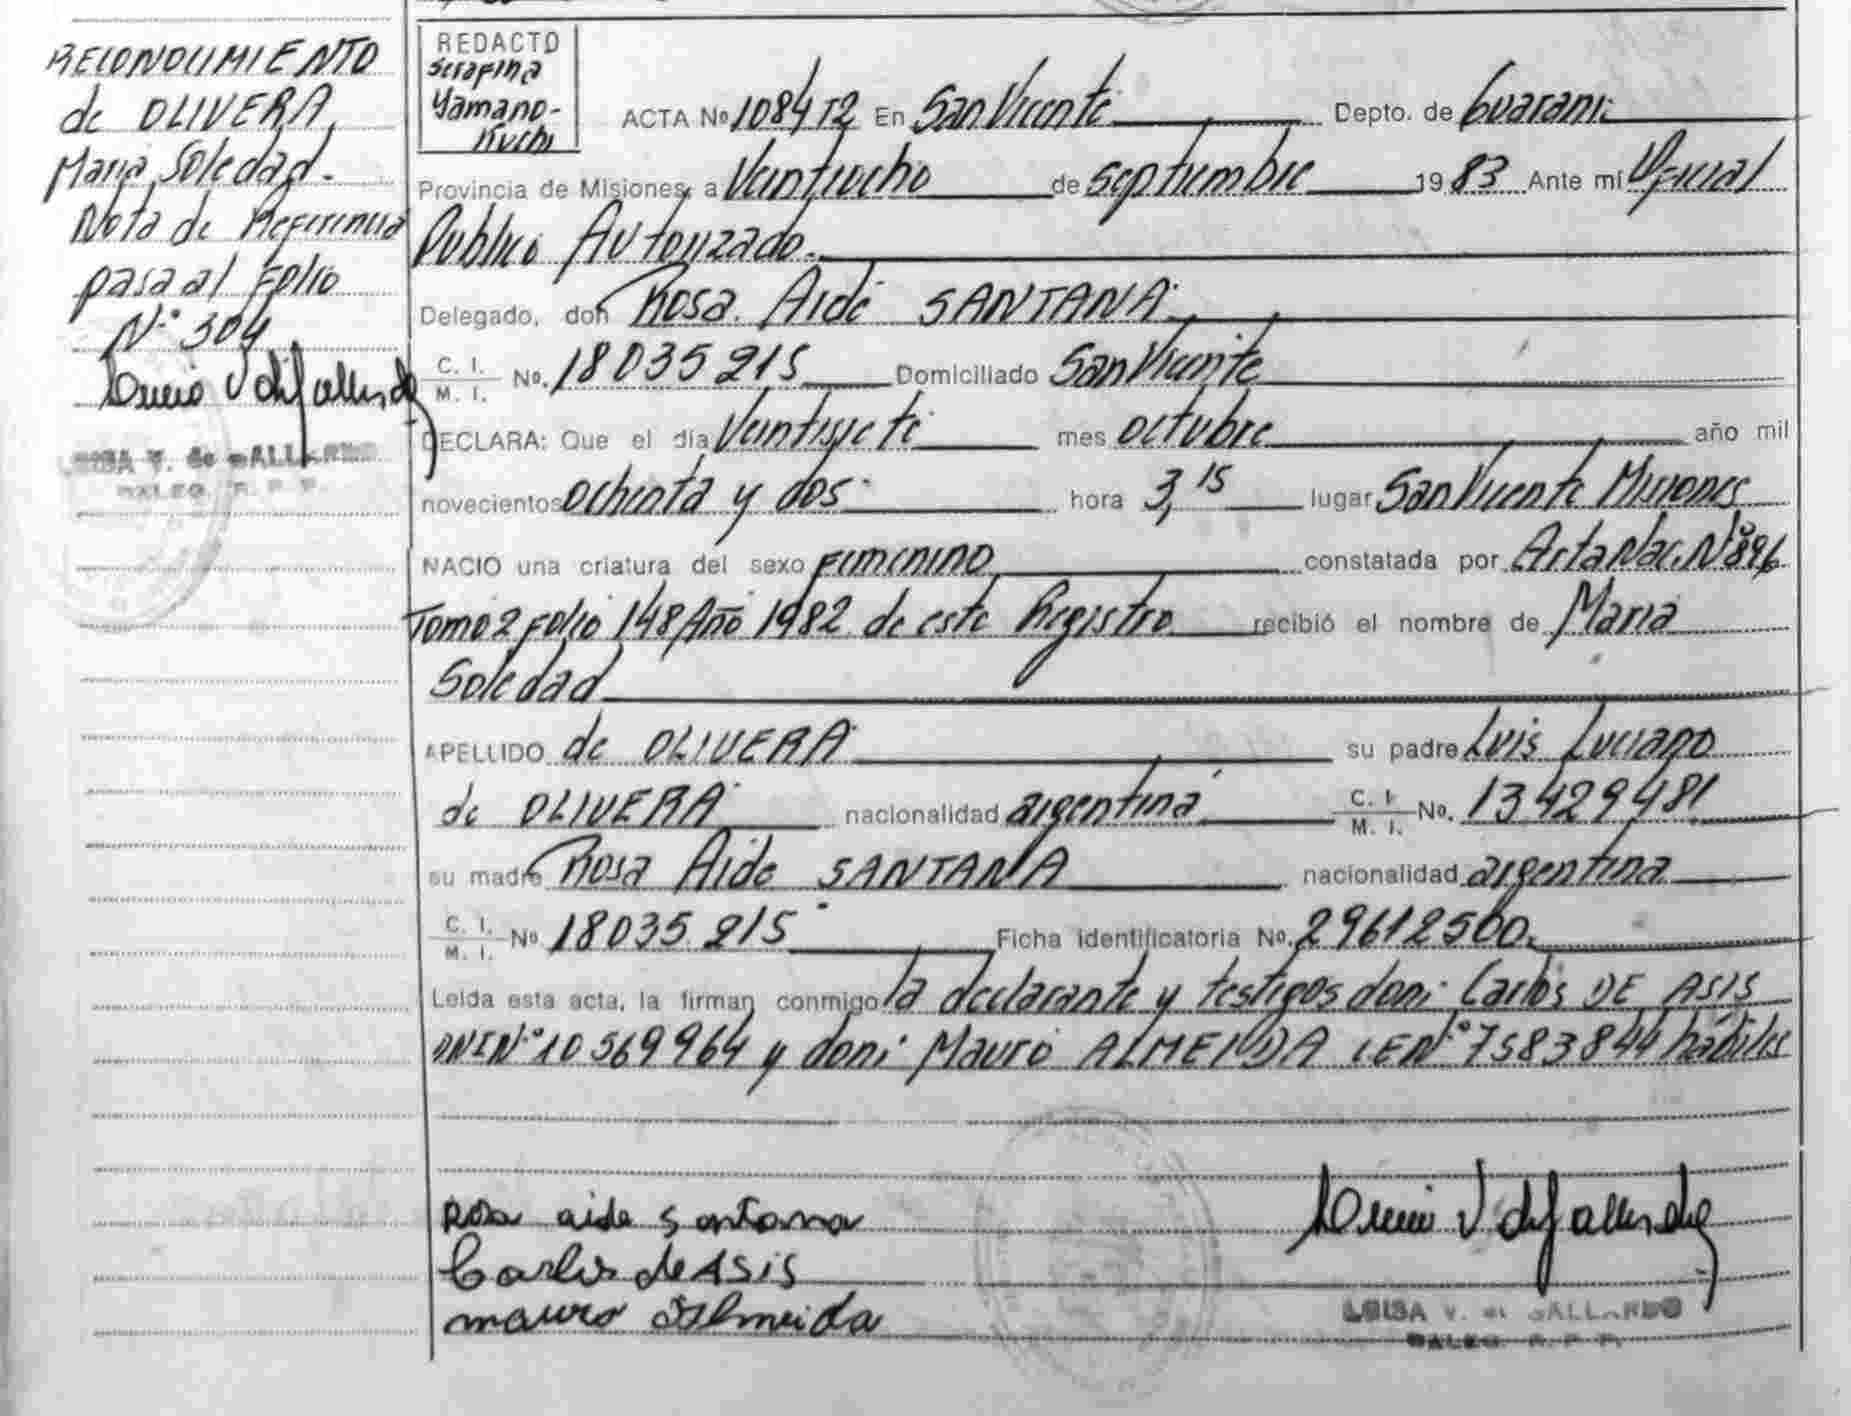 RECONOCIMIENTO
de OLIVERA,
Maria Soledad.
Nota de Referencia
pasa al Folio
N° 304
LUISA V. de GALLARDO
DALEG. R. P. P.
REDACTO
Serafina
Yamano-
Kuchi
ACTA No 1084 T2 En San Vicente Depto. de Guarani
Provincia de Misiones, a Veintiocho de Septiembre 19 83 Ante mi Oficial
Publico Autorizado.
Delegado, don Rosa Aide SANTANA
C. I. / M. I. No. 18035215 Domiciliado San Vicente
DECLARA: Que el día Veintisiete mes octubre año mil
novecientos ochenta y dos hora 3,15 lugar San Vicente Misiones
NACIO una criatura del sexo FEMENINO constatada por Acta Nac. N° 896
Tomo 2 Folio 148 Año 1982 de este Registro recibió el nombre de Maria
Soledad
APELLIDO de OLIVERA su padre Luis Luciano
de OLIVERA nacionalidad argentina C. I. / M. I. No. 13429481
su madre Rosa Aide SANTANA nacionalidad argentina
C. I. / M. I. No 18035.215 Ficha identificatoria No. 29612500.
Leída esta acta, la firman conmigo la declarante y testigos don: Carlos DE ASIS
DNI N° 10569964 y don: Mauro ALMEIDA LE N° 7583844 habiles
Rosa aide santana
Carlos de ASiS
mauro Almeida
LUISA V. de GALLARDO
DALEG. R. P. P.